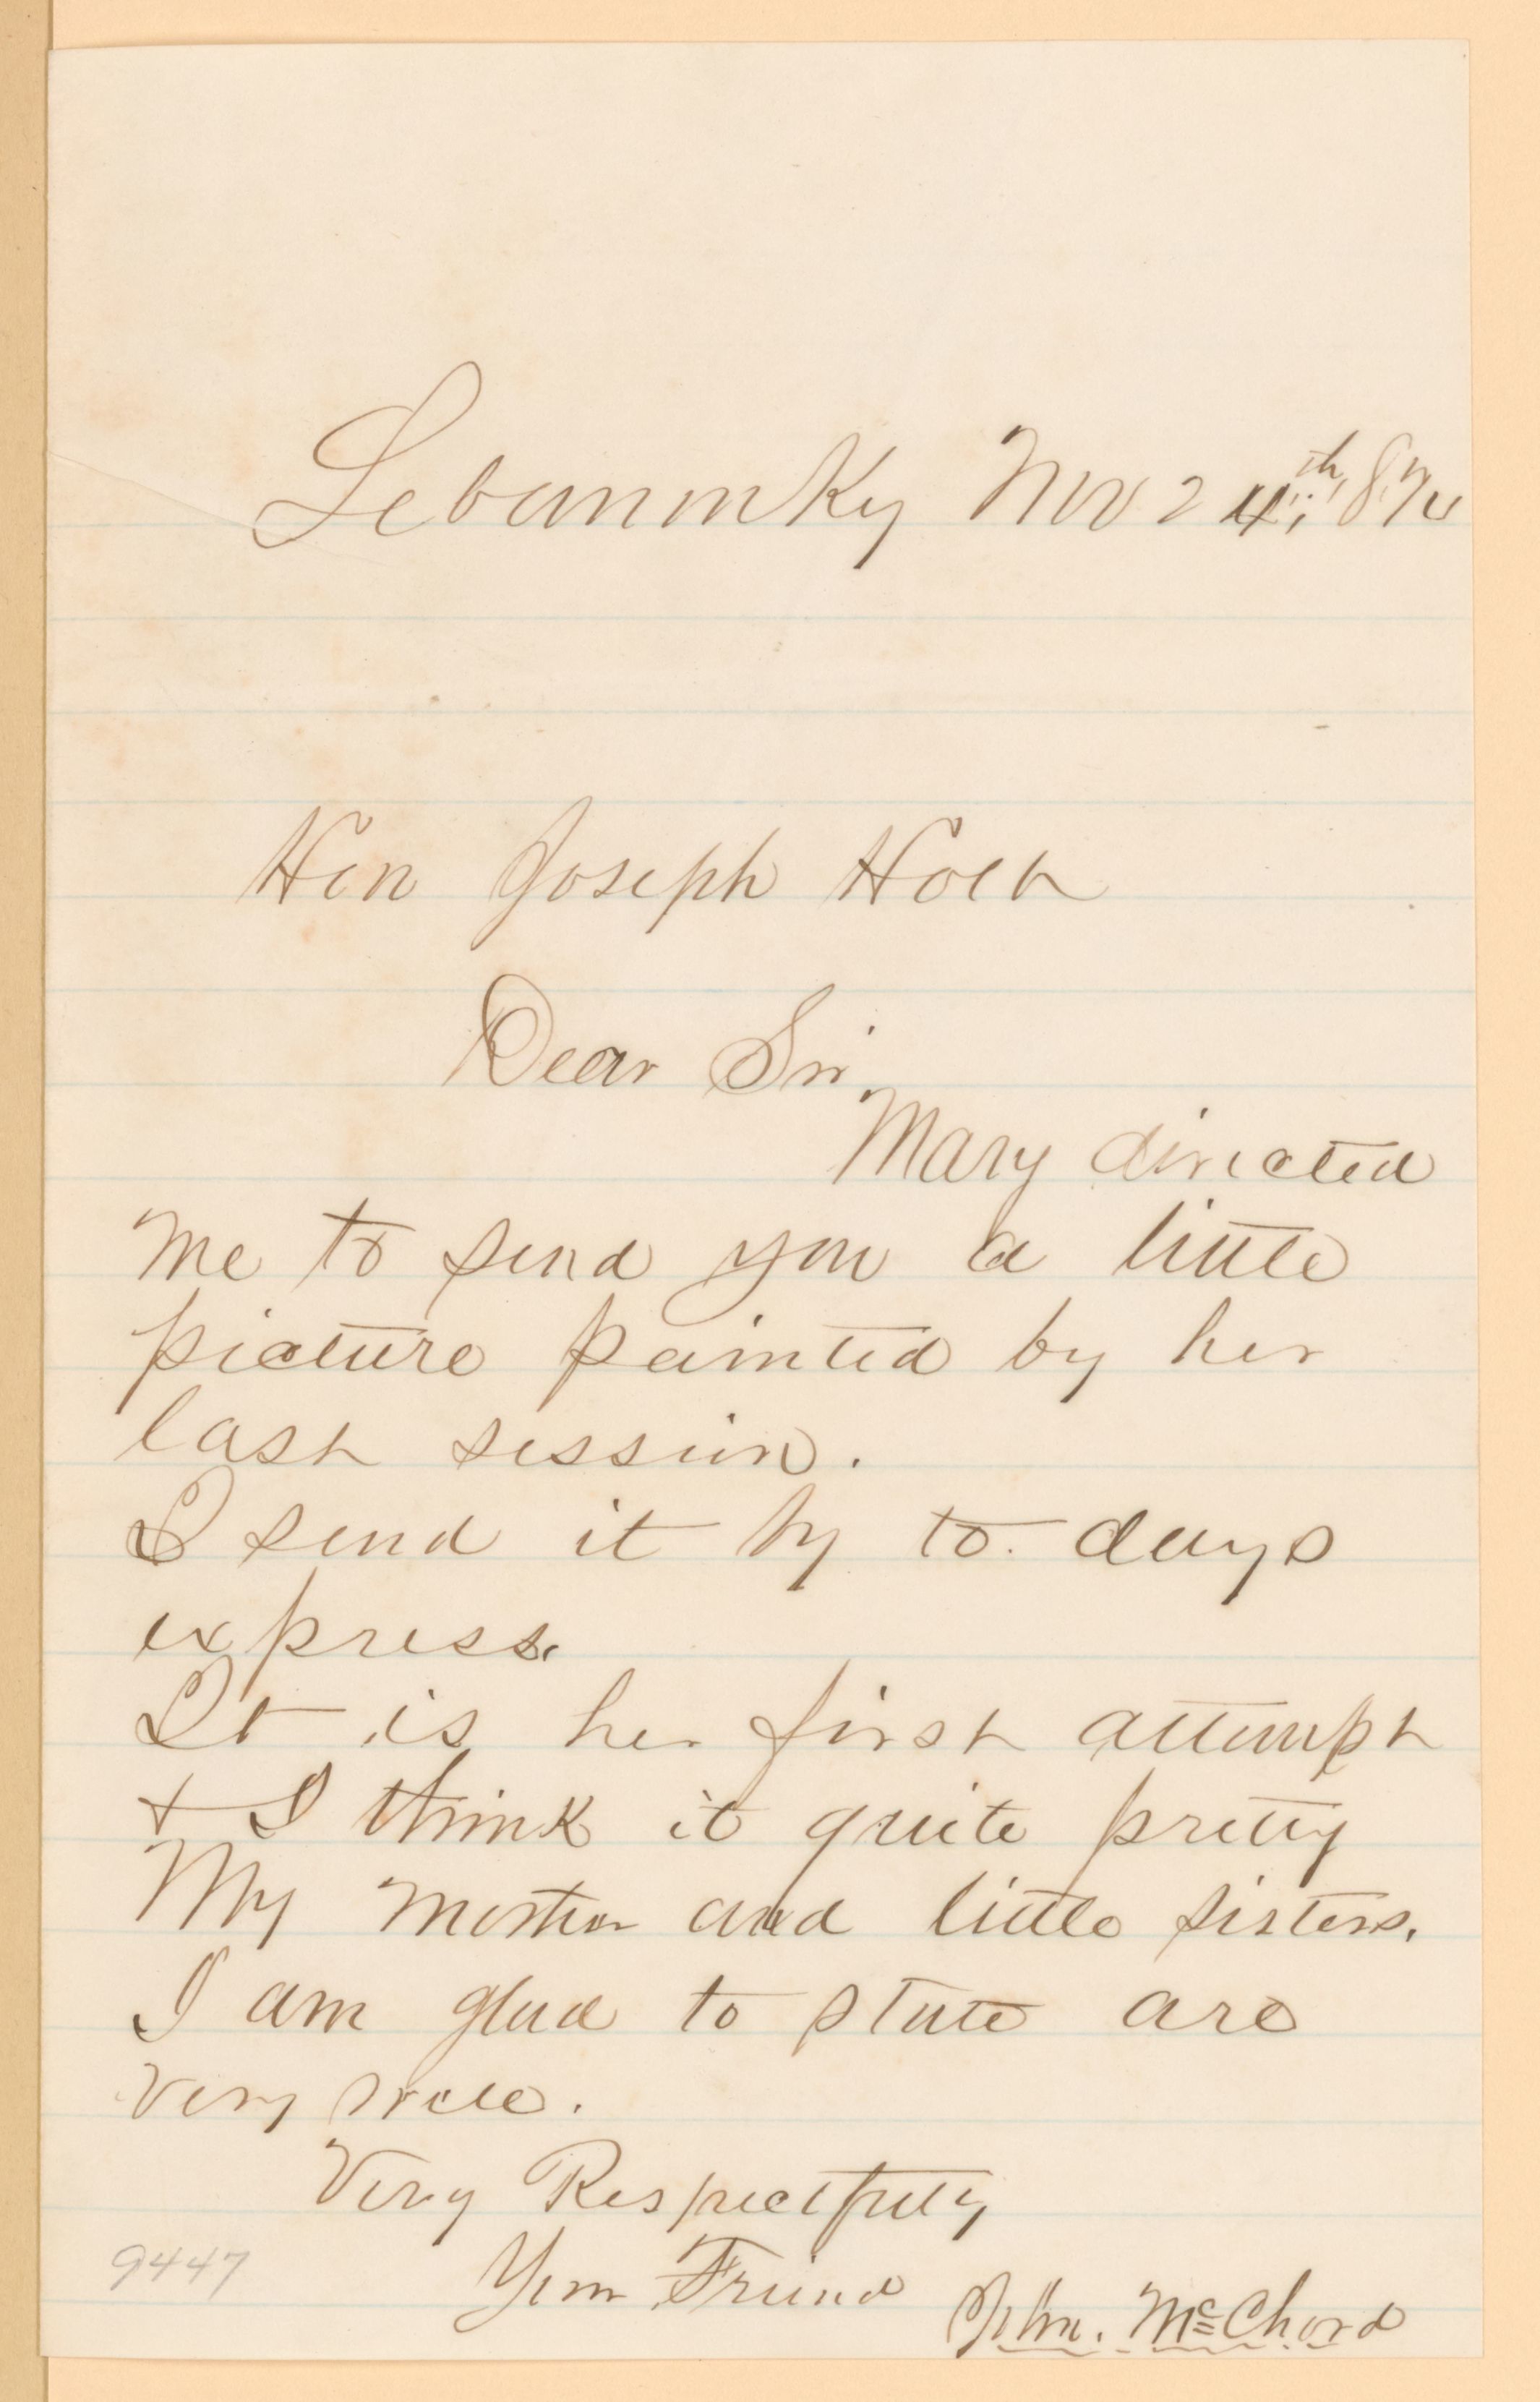 Lebanon Ky Nov 24th,
Hon Joseph Holt
Dear Sir.
Mary directed
me to send you a little
picture painted by her
last session.
I send it by to. days
express.
It is her first attempt
& I think it quite pretty
My mother and little sisters.
I am glad to state are
very well.
Very Respectfully
Your Friend
Jno. McChord
9447